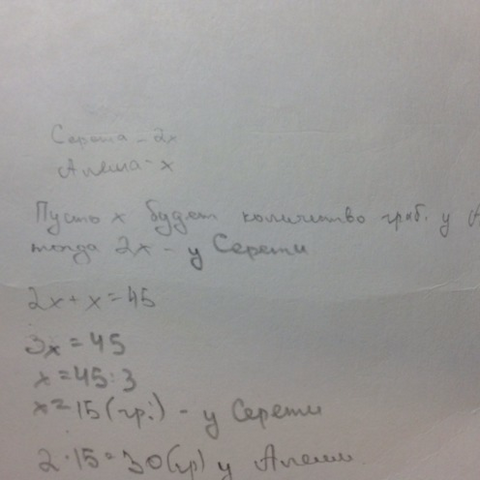 Сережа - 2x
Алеша - x
Пусть x будет количество гриб. у А
тогда 2x - у Сережи
2x + x = 45
3x = 45
x = 45 : 3
x = 15 (гр.) - у Сережи
2 · 15 = 30 (гр) у Алеши.